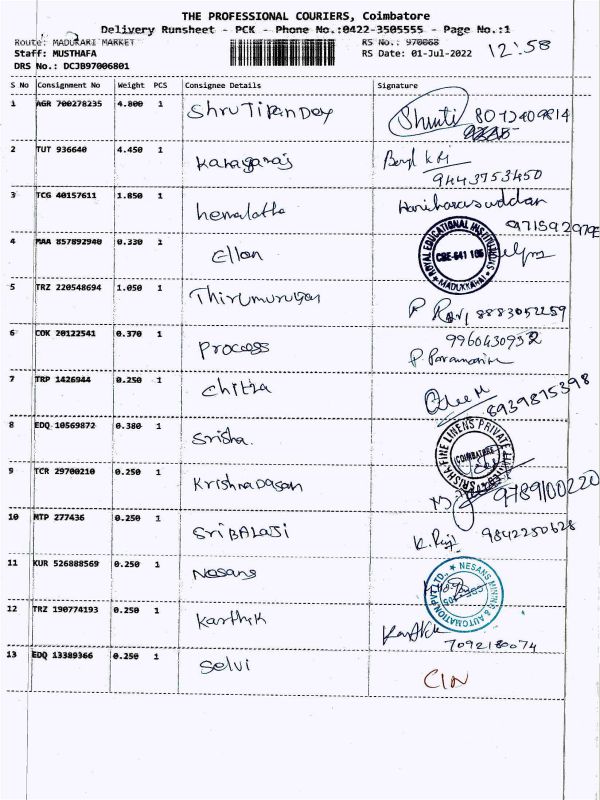 THE PROFESSIONAL COURIERS, Coimbatore
Delivery Runsheet - PCK - Phone No.:0422-3505555 - Page No.:1
Route: MADUKARI MARKET RS No.: 970068 12:58
Staff: MUSTHAFA RS Date: 01-Jul-2022
DRS No.: DCJB97006801
S No Consignment No Weight PCS Consignee Details Signature
1 AGR 700278235 4.800 1 ShruTi PanDey Shruti 8072409814
2 TUT 936640 4.450 1 Kanagaraj
9443753450
3 TCG 40157611 1.850 1 hemalatha Hariharasuddan
4 MAA 857892940 0.330 1 Ellan ROYAL EDUCATIONAL INSTITUTIONS CBE-641 105 MADUKKARAI
5 TRZ 220548694 1.050 1 Thirumurugan P Ravi 8883052259
6 COK 20122541 0.370 1 Process 9960430952
7 TRP 1426944 0.250 1 Chitra 8939815398
8 EDQ 10569872 0.380 1 Srisha. SRISHA FINE LINENS PRIVATE LIMITED COIMBATORE
9 TCR 29700210 0.250 1 Krishnadasan 9789100220
10 MTP 277436 0.250 1 SRIBALAJI K. Raj 9842250628
11 KUR 526888569 0.250 1 Nesans NESANS MINING & AUTOMATION PVT LTD.,
12 TRZ 190774193 0.250 1 Karthik Karthik
7092180074
13 EDQ 13389366 0.250 1 Selvi